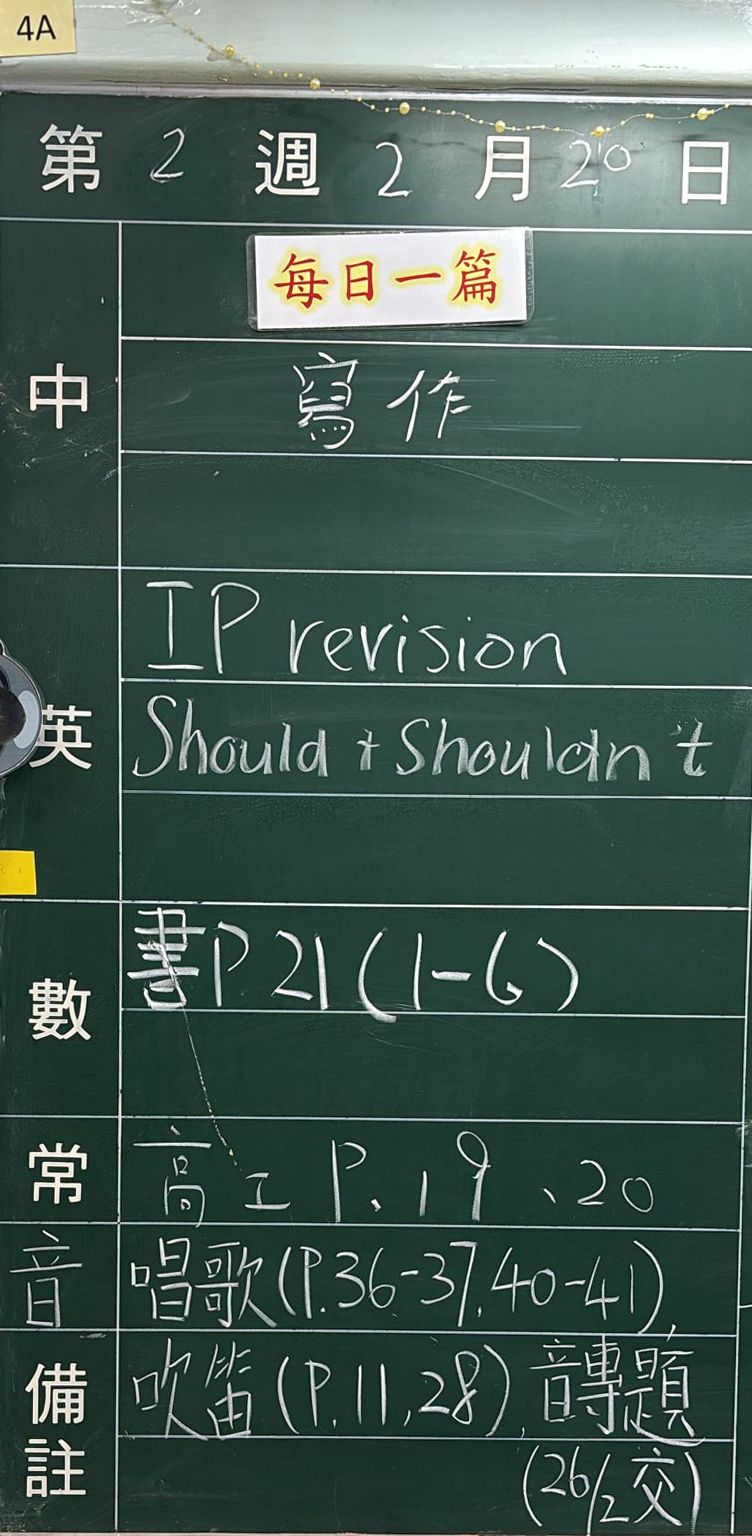 4A
第 2 週 2 月 20 日
每日一篇
中
寫作
IP revision
英
Should + Shouldn't
數
書P 21 (1-6)
常
高工 P. 19、20
音
唱歌(P.36-37, 40-41),
備註
吹笛(P.11,28), 音專題
(26/2 交)